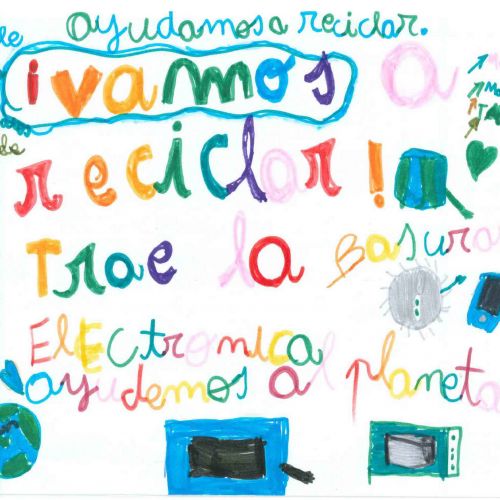 ayudamos a reciclar.
¡vamos a
reciclar!
Trae la Basura
Electronica
ayudemos al planeta